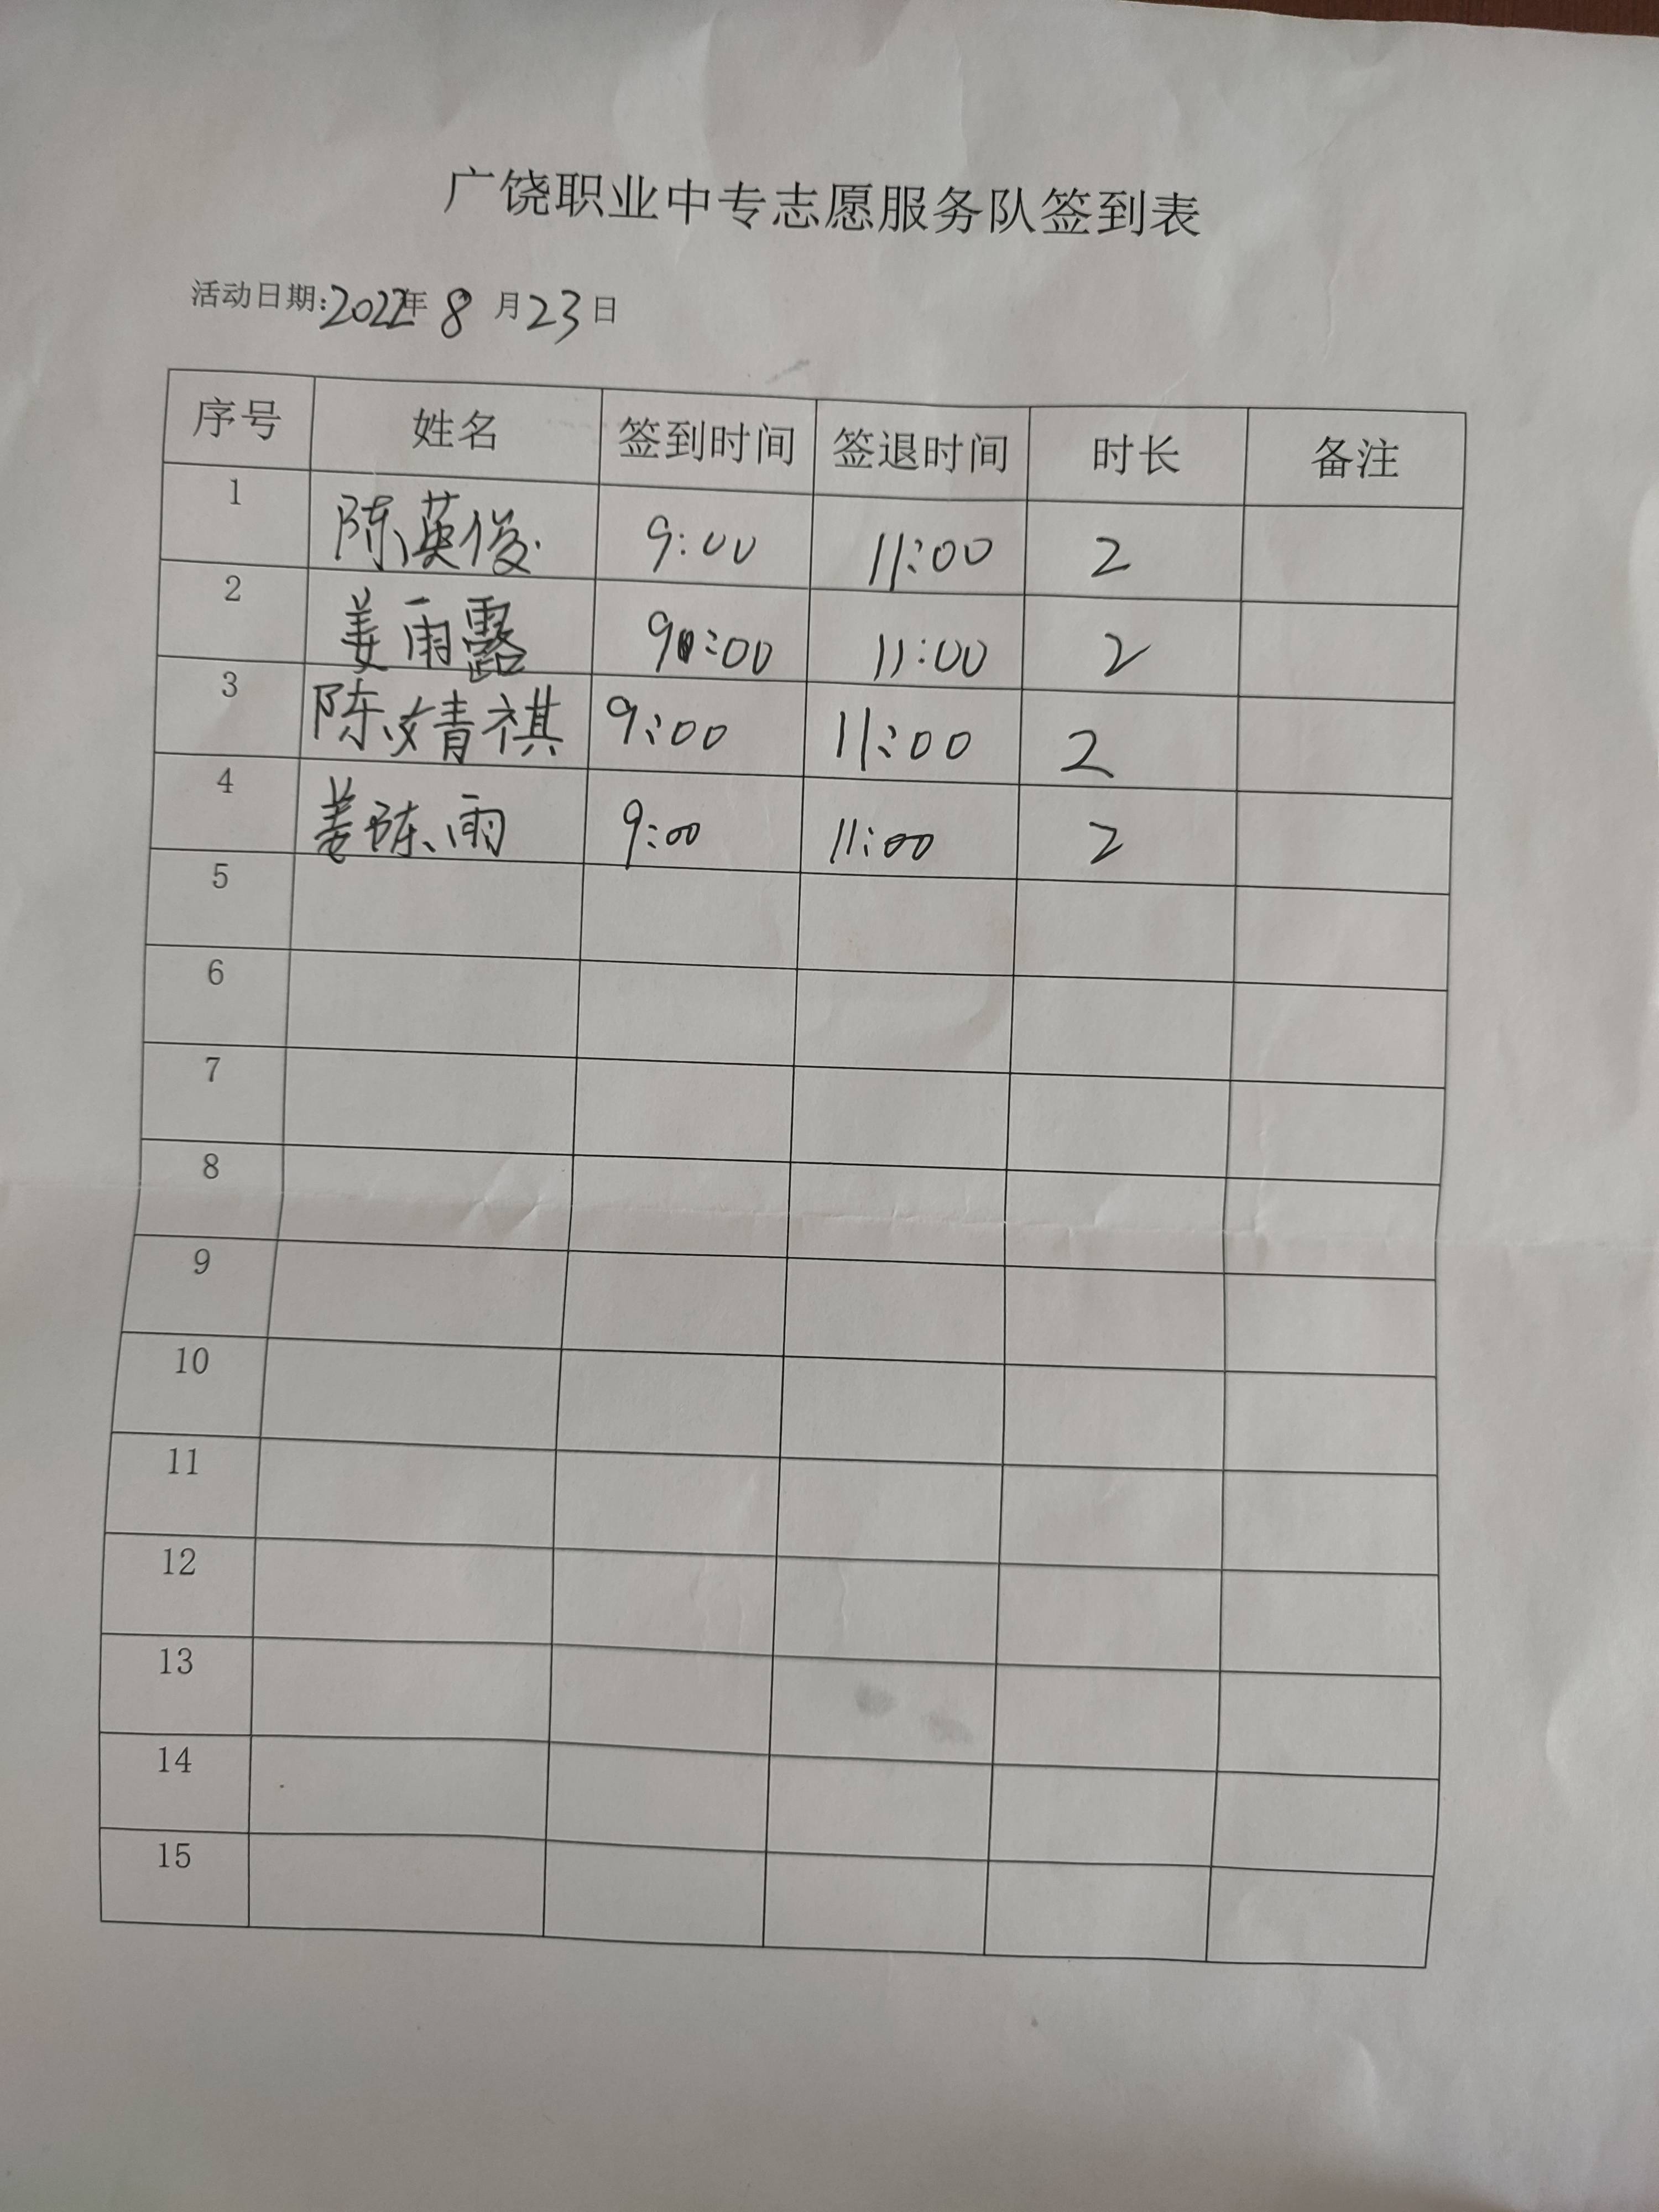 广饶职业中专志愿服务队签到表
活动日期:2022年 8 月 23 日
序号 姓名 签到时间 签退时间 时长 备注
1 陈英俊 9:00 11:00 2
2 姜雨露 9:00 11:00 2
3 陈婧祺 9:00 11:00 2
4 姜陈雨 9:00 11:00 2
5
6
7
8
9
10
11
12
13
14
15